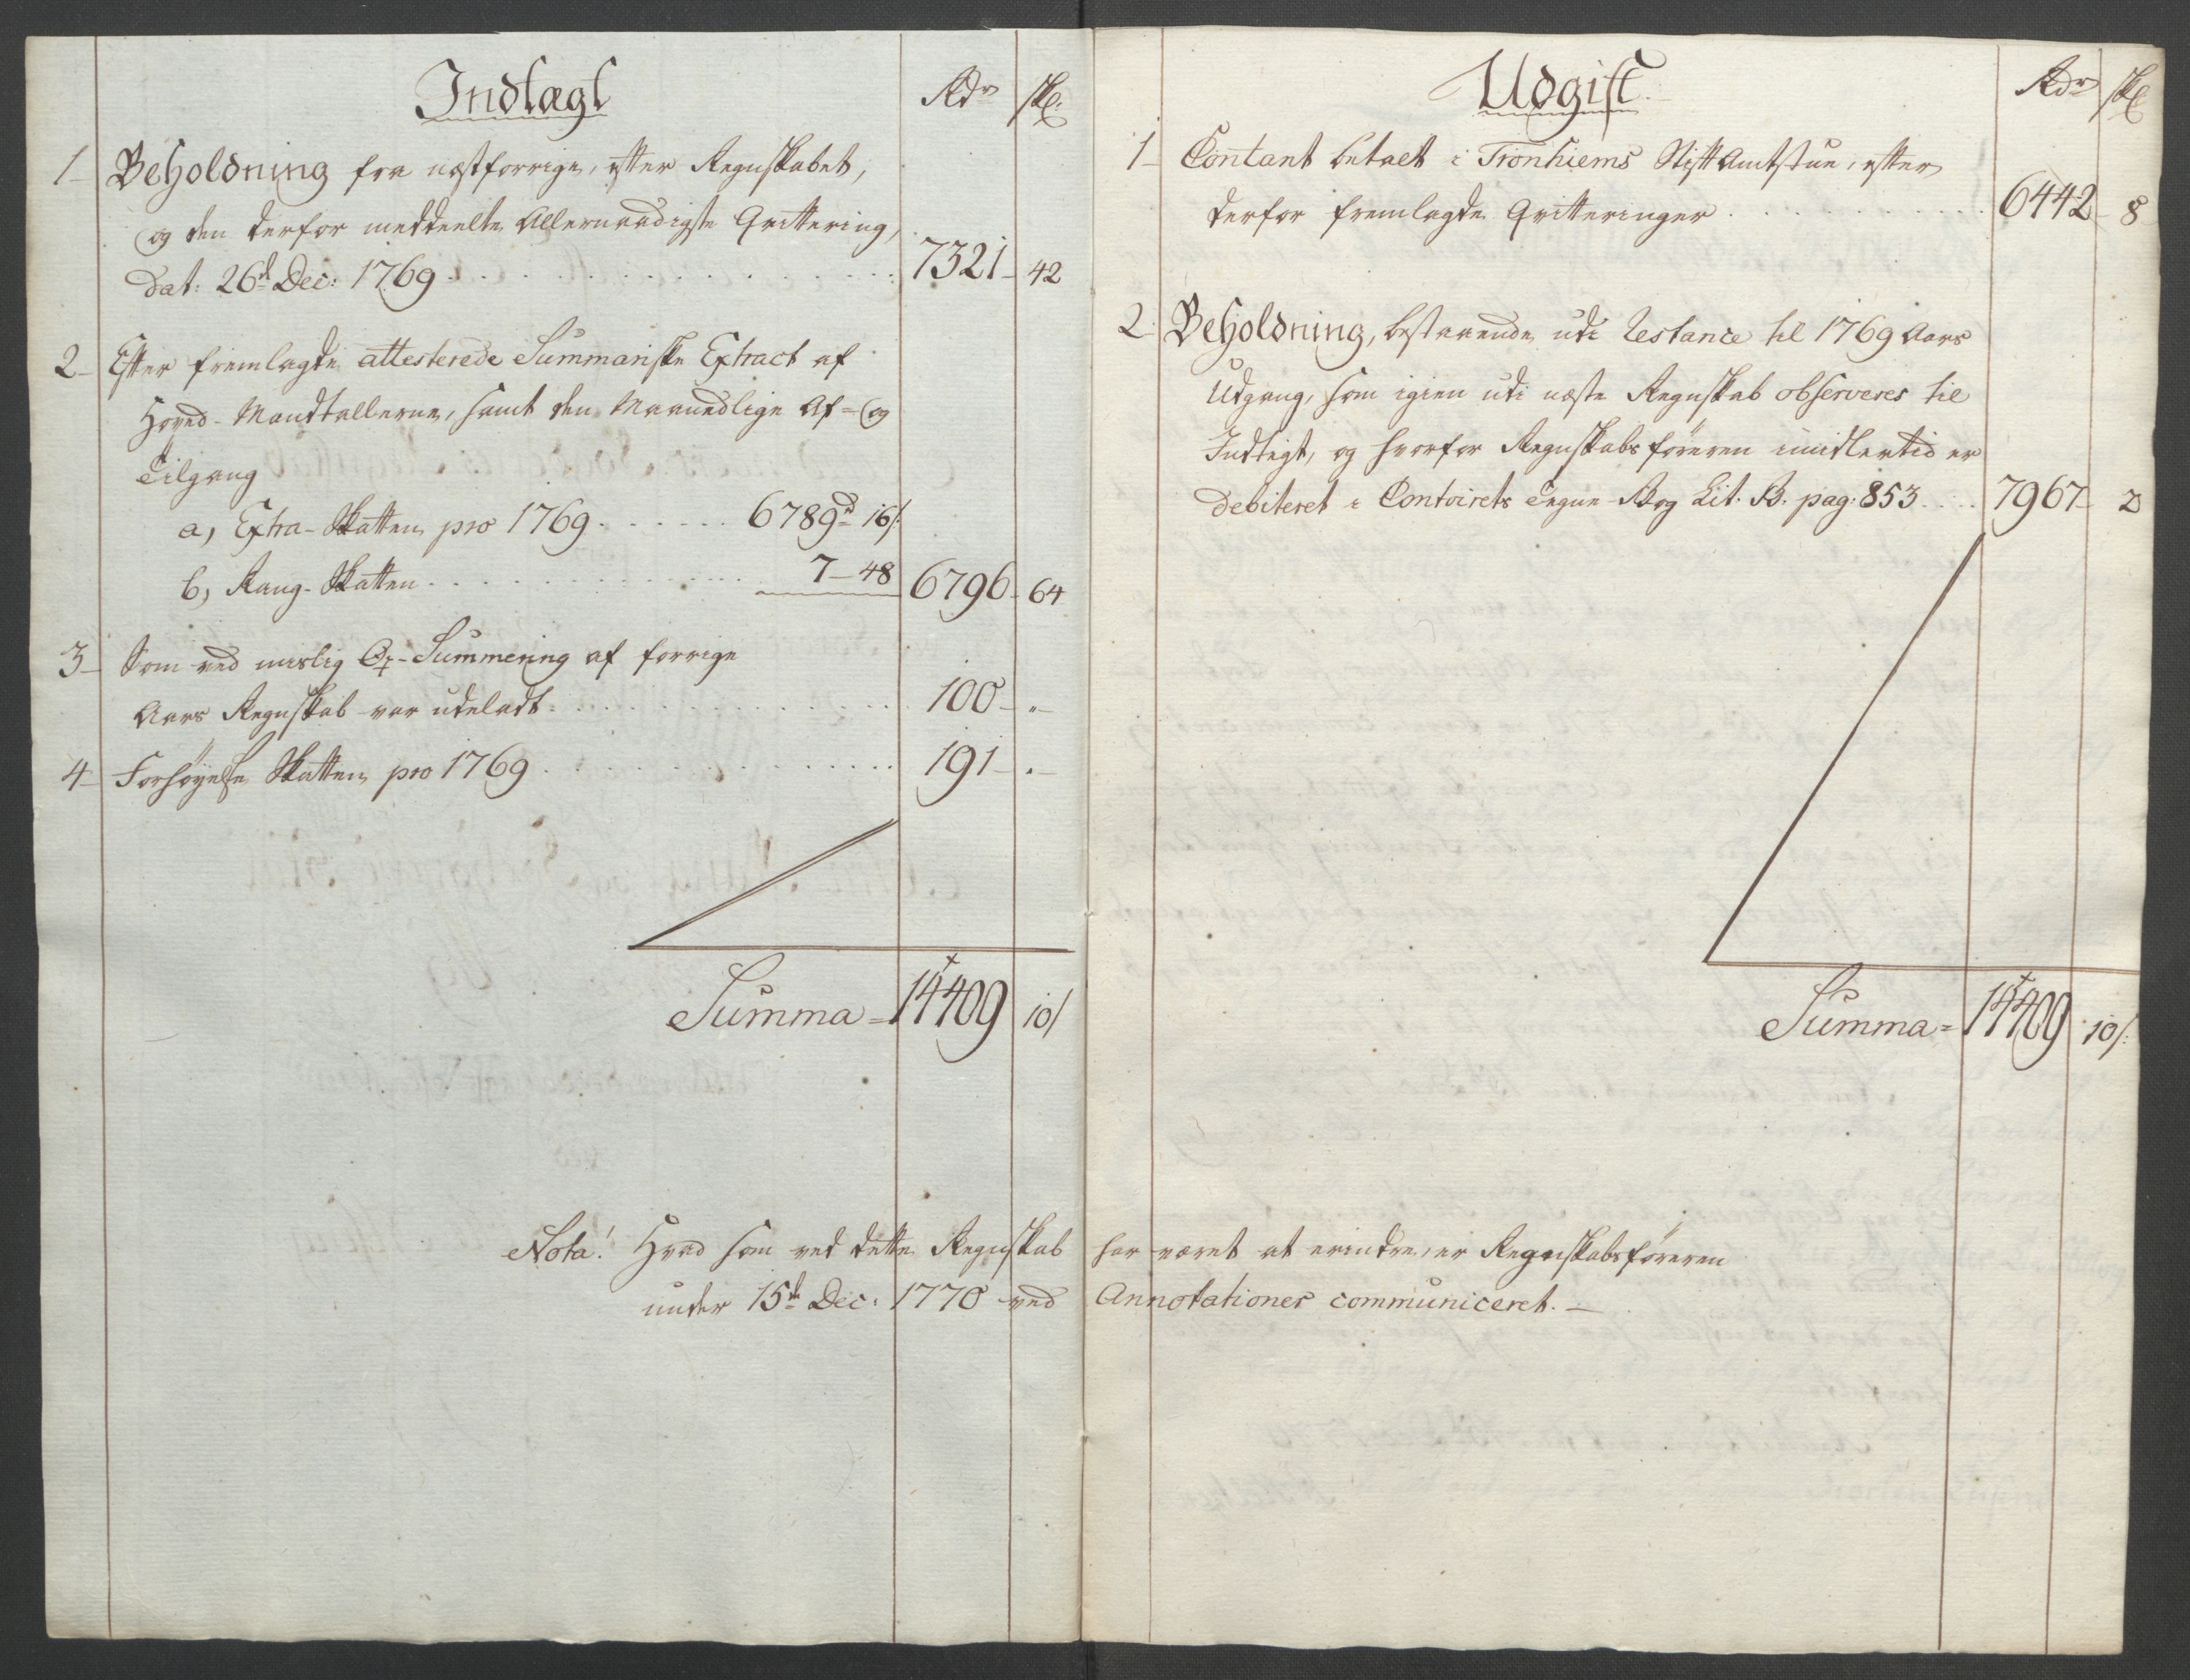 Indtægt
Rdr skl:
1 Beholdning fra næstforrige, efter Regnskabet,
og den derfor meddeelte Allernaadigste Qvittering,
dat: 26de Dec: 1769 . . . 7321 42
2 Efter fremlagde attesterede Summariske Extract af
Hoved-Mandtallerne, samt den Maanedlige Af= og
Tilgang
a, Extra-Skatten pro 1769 . . . 6789rd 16s:
b, Rang-Skatten . . . 7 - 48 6796 64
3 Som ved urigtig Op-Summering af forrige
Aars Regnskab var udeladt . . . 100 - "
4 Forhøyelse Skatten pro 1769 . . . 191 - "
Summa = 14409 10s
Udgift
Rdr skl
1 Contant betalt i Tronhiems Stiftamtstue, efter
derfor fremlagde Qvitteringer . . . 6442 8
2 Beholdning, bestaaende udi Restance til 1769 Aars
Udgang, som igien udi næste Regnskab observeres til
Indtægt, og hvorfor Regnskabsføreren imidlertid er
debiteret i Contoirets Tegne-Bog Lit. B. pag: 853 . . . 7967 2
Summa = 14409 10s:
Nota! Hvad som ved dette Regnskab har været at erindre, er Regnskabsføreren
under 15de Dec: 1770 ved Annotationer communiceret. —